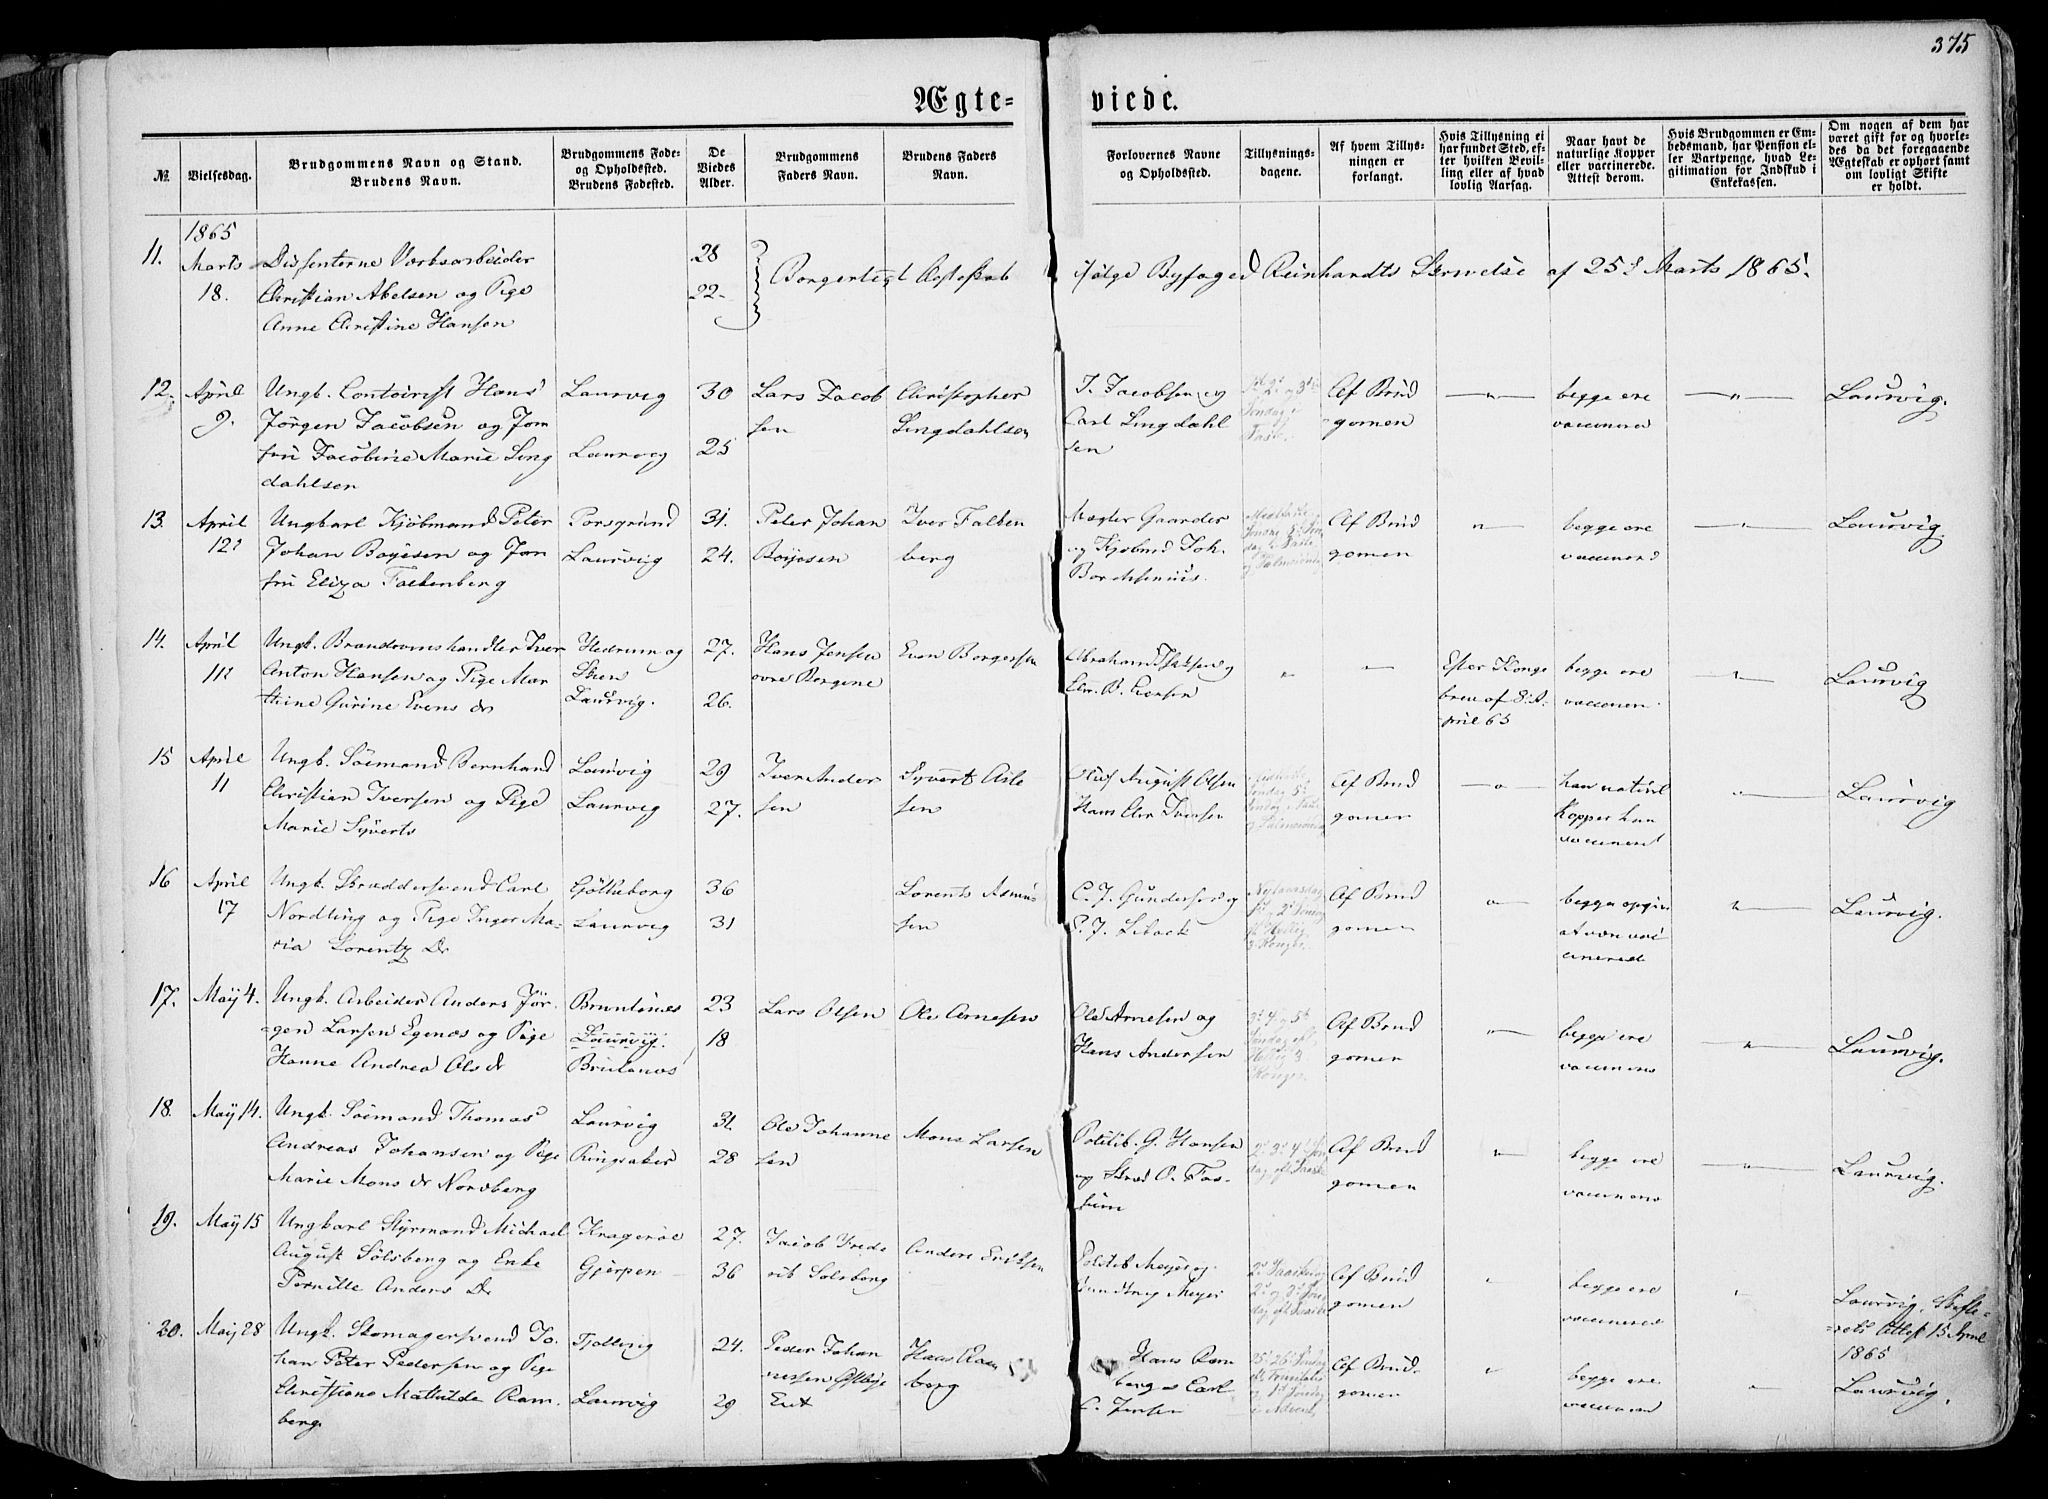 375
Ægte- viede.
№
Vielsesdag.
Brudgommens Navn og Stand.
Brudens Navn.
Brudgommens Føde-
og Opholdssted.
Brudens Fødested.
De
Viedes
Alder.
Brudgommens
Faders Navn.
Brudens Faders
Navn.
Forlovernes Navne
og Opholdssted.
Tillysnings-
dagene.
Af hvem Tillys-
ningen er
forlangt.
Hvis Tillysning ei
har fundet Sted, ef-
ter hvilken Bevil-
ling eller af hvad
lovlig Aarsag.
Naar havt de
naturlige Kopper
eller vaccinerede.
Attest derom.
Hvis Brudgommen er Em-
bedsmand, har Pension el-
ler Vartpenge, hvad Le-
gitimation for Indskud i
Enkekassen.
Om nogen af dem har
været gift før og hvorle-
des da det foregaaende
Ægteskab er ophørt samt
om lovligt Skifte
er holdt.
1865
11.
Marts
18.
Dissenterne Værksarbeider
Christian Abelsen og Pige
Anne Christine Hansen
28
22.
Borgerligt Ægteskab ifølge Byfoged Reinhardts Skrivelse af 25 Marts 1865.
12.
April
9.
Ungk. Contoirist Hans
Jørgen Jacobsen og Jom
fru Jacobine Marie Ling
dahlsen
Laurvig
Laurvig
30
25
Lars Jacob
sen
Christopher
Lingdahlsen
J. Jacobsen og
Carl Lingdahl
sen
Af Brud
gomen
begge ere
vaccinered
Laurvig.
13.
April
12
Ungkarl Kjøbmand Peter
Johan Boyesen og Jom
fru Eliza Falkenberg
Porsgrund
Laurvig
31.
24.
Peter Johan
Boyesen
Iver Falken
berg
Mægler Gaarder
og Kjøbmd Joh.
Borchsenius.
Af Brud
gomen
begge ere
vaccinered
Laurvig.
14.
April
11
Ungk. Brændevinshandler Iver
Anton Hansen og Pige Mar
thine Gurine Evens Dr
Hedrum og
Skien
Laurvig.
27.
26.
Hans Jensen
øvre Bergene
Even Borgersen
Abraham Isaksen og
Chr. B. Evensen
Efter Konge
brev af 8. A-
pril 65
begge ere
vaccinere
Laurvig
15
April
11
Ungk. Sømand Bernhard
Christian Iversen og Pige
Marie Syverts
Laurvig
Laurvig
29
27.
Iver Ander
sen
Syvert Asle
sen
Oluf August Olsen
Hans Chr Iversen
Af Brud
gomen
han naturl
Kopper hun
vaccinered
Laurvig
16
April
17
Ungk. Skræddersvend Carl
Nordling og Pige Inger Ma-
ria Lorentz Dr
Gøtheborg
Laurvig
36
31
Lorents Asmus
sen
C. J. Gundersen og
Af Brud
gomen
begge opgiv
at være vac
cinered
Laurvig.
17.
May 4.
Ungk. Arbeider Anders Jør-
gen Larsen Egenæs og Pige
Hanne Andrea Ols Dr
Brunlanæs
Laurvig.
Brunlanæs
23
18
Lars Olsen
Ole Arnesen
Ole Arnesen og
Hans Andersen
Af Brud
gomen
begge ere
vaccinere
Laurvig.
18.
May 14.
Ungk. Sømand Thomas
Andreas Johansen og Pige
Marie Mons Dr Nordberg
Laurvig
Ringsaker
31.
28
Ole Johanne
sen
Mons Larsen
Politib. G. Hansen
og Skræd O. Fos-
sum
2. 3. 4 Søn
dag eft. Paaske
Af Brud
gomen
begge ere
vaccinere
Laurvig.
19.
May 15
Ungkarl Styrmand Michael
August Solsberg og Enke
Pernille Anders Dr
Kragerøe
Gjerpen
27.
36
Jacob Frede
rik Solsberg
Anders Eriksen
Politib Meyer og
Meyer
Af Brud
gomen
begge ere
vaccinered
Laurvig. Skifte-
rets Attest 15 April
1865
20.
May 28
Ungk. Skomagersvend Jo-
han Peter Pedersen og Pige
Christiane Mathilde Ram-
berg.
Tjølling
Laurvig
24.
29
Peder Johan
nessen Østbye
Eie
Hans Ram
berg
Hans Ram
berg og Carl
C. Jensen
25 26 Søndag
eft Trinitatis
og 1 Søndag
i Advent
Af Brud-
gomen
begge ere
vaccinered
Laurvig.